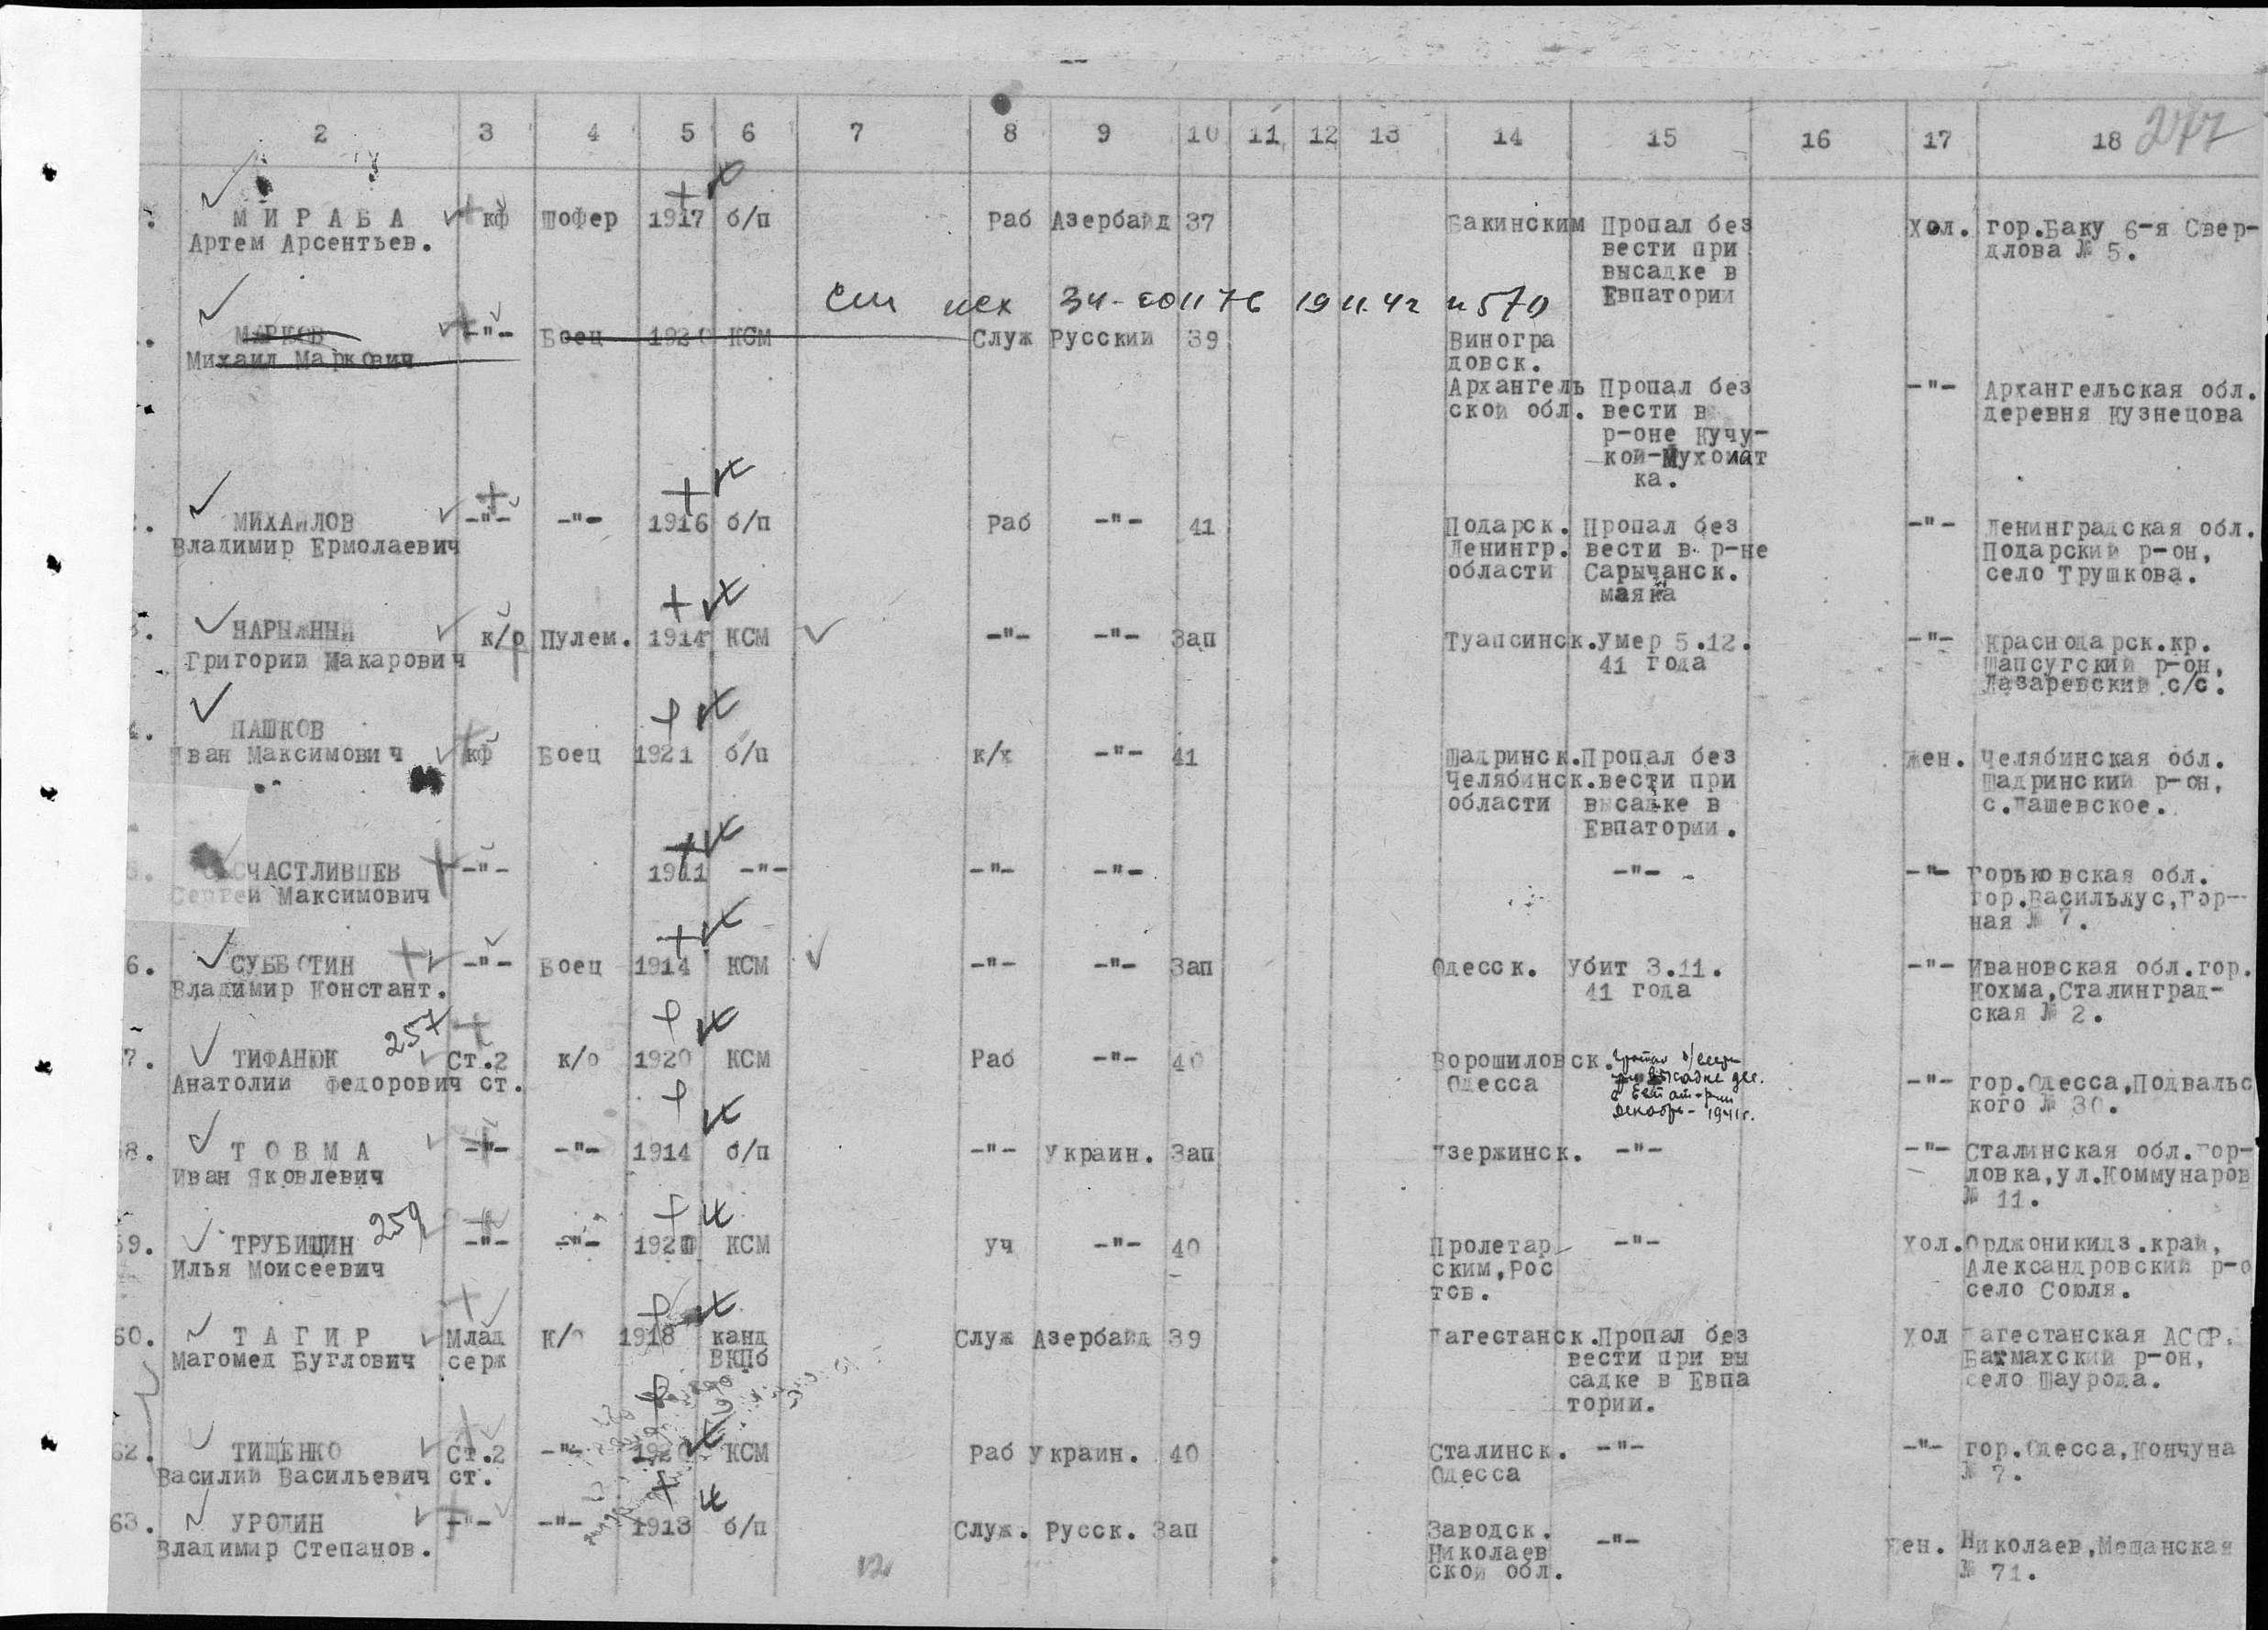 2 3 4 5 6 7 8 9 10 11 12 13 14 15 16 17 18 277
МИРАБА кф Шофер 1917 б/п Раб Азербайд 37 Бакинским Пропал без Хол. гор.Баку 6-я Свер-
Артем Арсентьев. вести при длова № 5.
высадке в
Евпатории
См исх 19 11 42
МАРКОВ -"- Боец КСМ Служ Русский 39 Виногра
Михаил Маркович довск.
Архангель Пропал без -"- Архангельская обл.
ской обл. вести в деревня Кузнецова
р-оне Кучу-
кой-Мухолат
ка.
МИХАЙЛОВ -"- -"- 1916 б/п Раб -"- 41 Подарск. Пропал без -"- Ленинградская обл.
Владимир Ермолаевич Ленингр. вести в р-не Подарский р-он,
области Сарычанск. село Трушкова.
маяка
НАРЫЖНЫЙ к/р Пулем. 1914 КСМ -"- -"- Зап Туапсинск. Умер 5.12. -"- Краснодарск.кр.
Григорий Макарович 41 года Шапсугский р-он,
Лазаревский с/с.
ПАШКОВ
Иван Максимович кф Боец 1921 б/п к/х -"- 41 Шадринск. Пропал без Жен. Челябинская обл.
Челябинск. вести при Шадринский р-он,
области высадке в с.Пашевское.
Евпатории.
СЧАСТЛИВЦЕВ -"- 1911 -"- -"- -"- -"- -"- Горьковская обл.
Сергей Максимович гор.Васильлус,Гор-
ная № 7.
6. СУББОТИН -"- Боец 1914 КСМ -"- -"- Зап Одесск. Убит 3.11. -"- Ивановская обл.гор.
Владимир Констант. 41 года Кохма,Сталинград-
ская № 2.
257
7. ТИФАНЮК Ст.2 к/о 1920 КСМ Раб -"- 40 Ворошиловск. Пропал б/вести
Анатолий Федорович ст. Одесса при высадке дес. -"- гор.Одесса,Подвальс
в Евпатории кого № 30.
декабрь - 1941г.
8. ТОВМА -"- -"- 1914 б/п -"- Украин. Зап Дзержинск. -"- -"- Сталинская обл.Гор-
Иван Яковлевич ловка,ул.Коммунаров
№ 11.
259
59. ТРУБИЦИН -"- -"- КСМ Уч -"- 40 Пролетар -"- Хол. Орджоникидз.край,
Илья Моисеевич ским,Рос Александровский р-о
тов. село Союля.
60. ТАГИР Млад К/о 1918 канд Служ Азербайд 39 Дагестанск. Пропал без Хол Дагестанская АССР.
Магомед Буглович серж ВКПб вести при вы Батмахский р-он,
садке в Евпа село Шаурода.
тории.
62. ТИЩЕНКО Ст.2 -"- 1920 КСМ Раб Украин. 40 Сталинск. -"- -"- гор.Одесса,Кончуна
Василий Васильевич ст. Одесса № 7.
63. УРОДИН -"- -"- 1913 б/п Служ. Русск. Зап Заводск. -"- Жен. Николаев,Мещанская
Владимир Степанов. Николаев № 71.
ской обл.
12